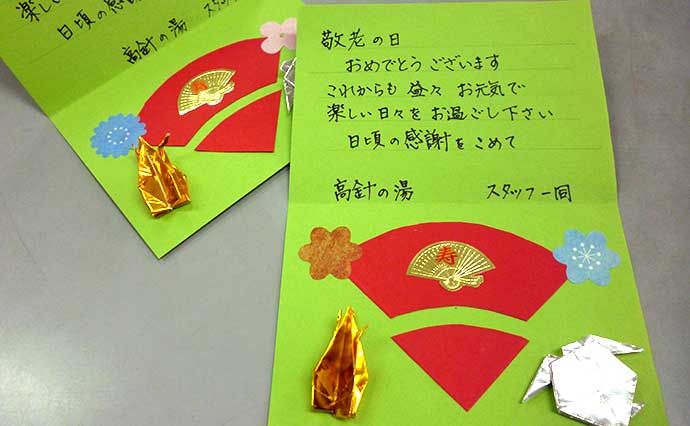 楽しい
日頃の感
高針の湯 スタッフ
敬老の日
おめでとうございます
これからも 益々 お元気で
楽しい日々を お過ごし下さい
日頃の感謝をこめて
高針の湯 スタッフ一同
寿